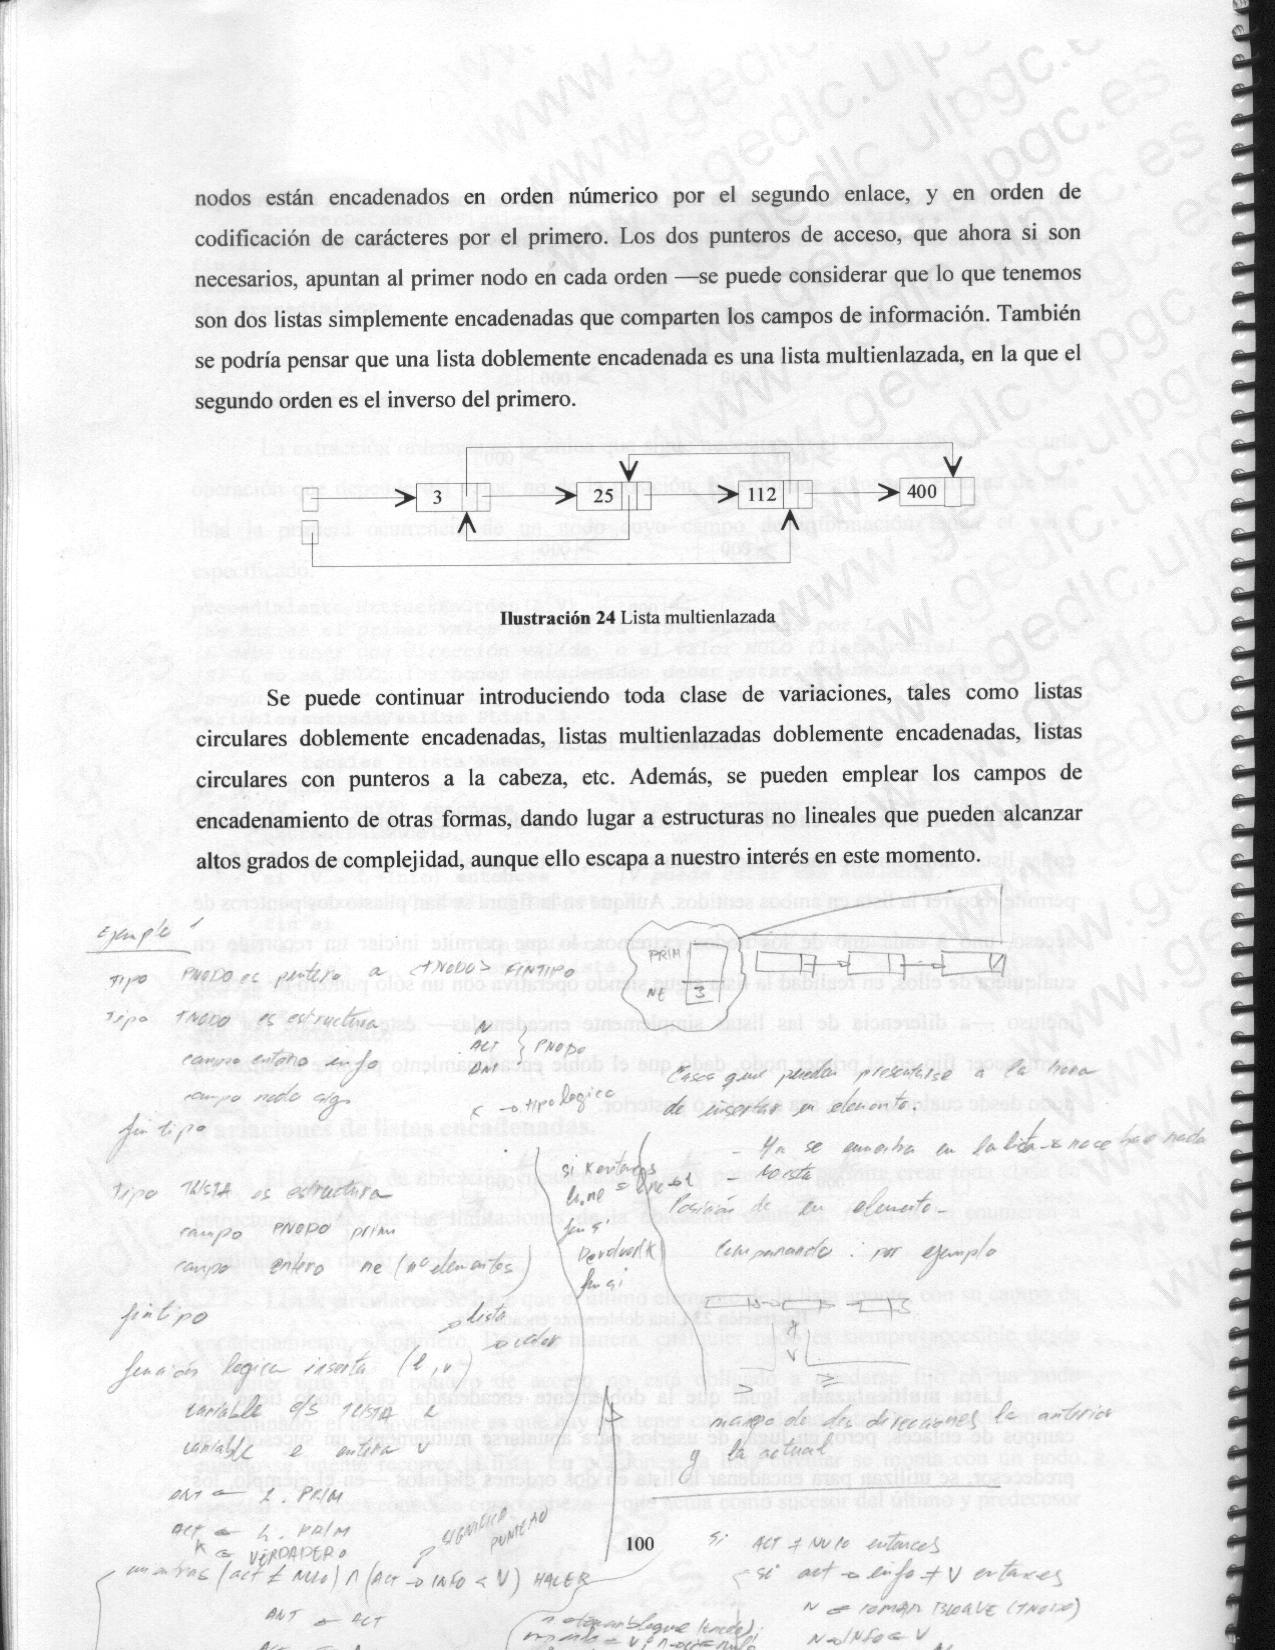 nodos están encadenados en orden númerico por el segundo enlace, y en orden de
codificación de carácteres por el primero. Los dos punteros de acceso, que ahora si son
necesarios, apuntan al primer nodo en cada orden —se puede considerar que lo que tenemos
son dos listas simplemente encadenadas que comparten los campos de información. También
se podría pensar que una lista doblemente encadenada es una lista multienlazada, en la que el
segundo orden es el inverso del primero.
3 25 112 400
Ilustración 24 Lista multienlazada
Se puede continuar introduciendo toda clase de variaciones, tales como listas
circulares doblemente encadenadas, listas multienlazadas doblemente encadenadas, listas
circulares con punteros a la cabeza, etc. Además, se pueden emplear los campos de
encadenamiento de otras formas, dando lugar a estructuras no lineales que pueden alcanzar
altos grados de complejidad, aunque ello escapa a nuestro interés en este momento.
Ejemplo 1
TIPO PNODO es puntero a <TNODO> FINTIPO
Tipo TNODO es estructura
campo entero info
campo nodo sig
fintipo
Tipo TLISTA es estructura
campo PNODO prim
campo entero ne (nº elementos)
fintipo
lista
función logica inserta (l, v)
variable e/s TLISTA l
variable e entera v
ANT ← L.PRIM
ACT ← L.PRIM
K ← VERDADERO
mientras (act ≠ NULO) ∧ (ACT → INFO < V) HACER
ANT ← ACT
N
ACT } PNODO
ANT
K → tipo logico
si K entonces
finsi
Devolver(K)
finsi
SIGNIFICA
PUNTERO
PRIM
NE 3
Casos que pueden presentarse a la hora
de insertar un elemento:
- Ya se encuentra en la lista → no se hace nada
- No esta
Posición de un elemento -
Comparando: por ejemplo
> ≥
manejo de dos direcciones la anterior
y la actual
100
si ACT ≠ NULO entonces
si act → info ≠ V entonces
N ← TOMAR BLOQUE (TNODO)
N→INFO ← V
www.gedlc.ulpgc.es